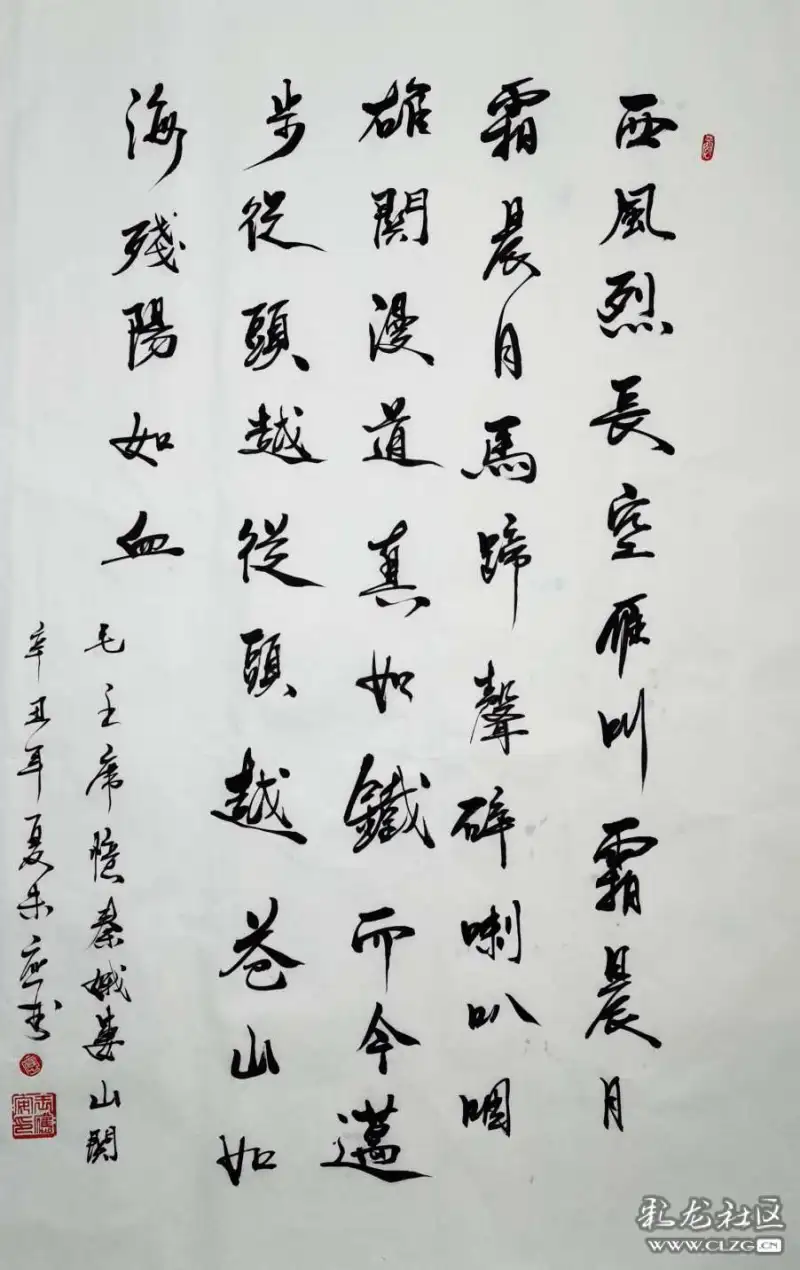 西風烈長空雁叫霜晨月
霜晨月馬蹄聲碎喇叭咽
雄關漫道真如鐵而今邁
步從頭越從頭越蒼山如
海殘陽如血
毛主席憶秦娥婁山關
辛丑年夏朱應書
彩龙社区
WWW.CLZG.CN